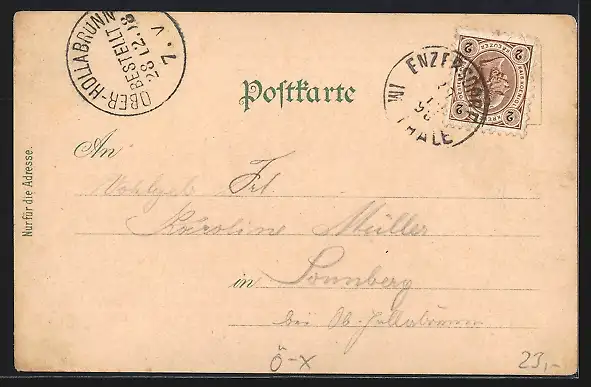 OBER-HOLLABRUNN
BESTELLT
28 12. 98
7. V
ENZERSDORF
IM THALE
98
2 KREUZER 2
2 2
Postkarte
An
Wohlgeb Frl.
Karoline Müller
in Sonnberg
bei Ob. Hollabrunn
Nur für die Adresse.
Ö-X
23,-